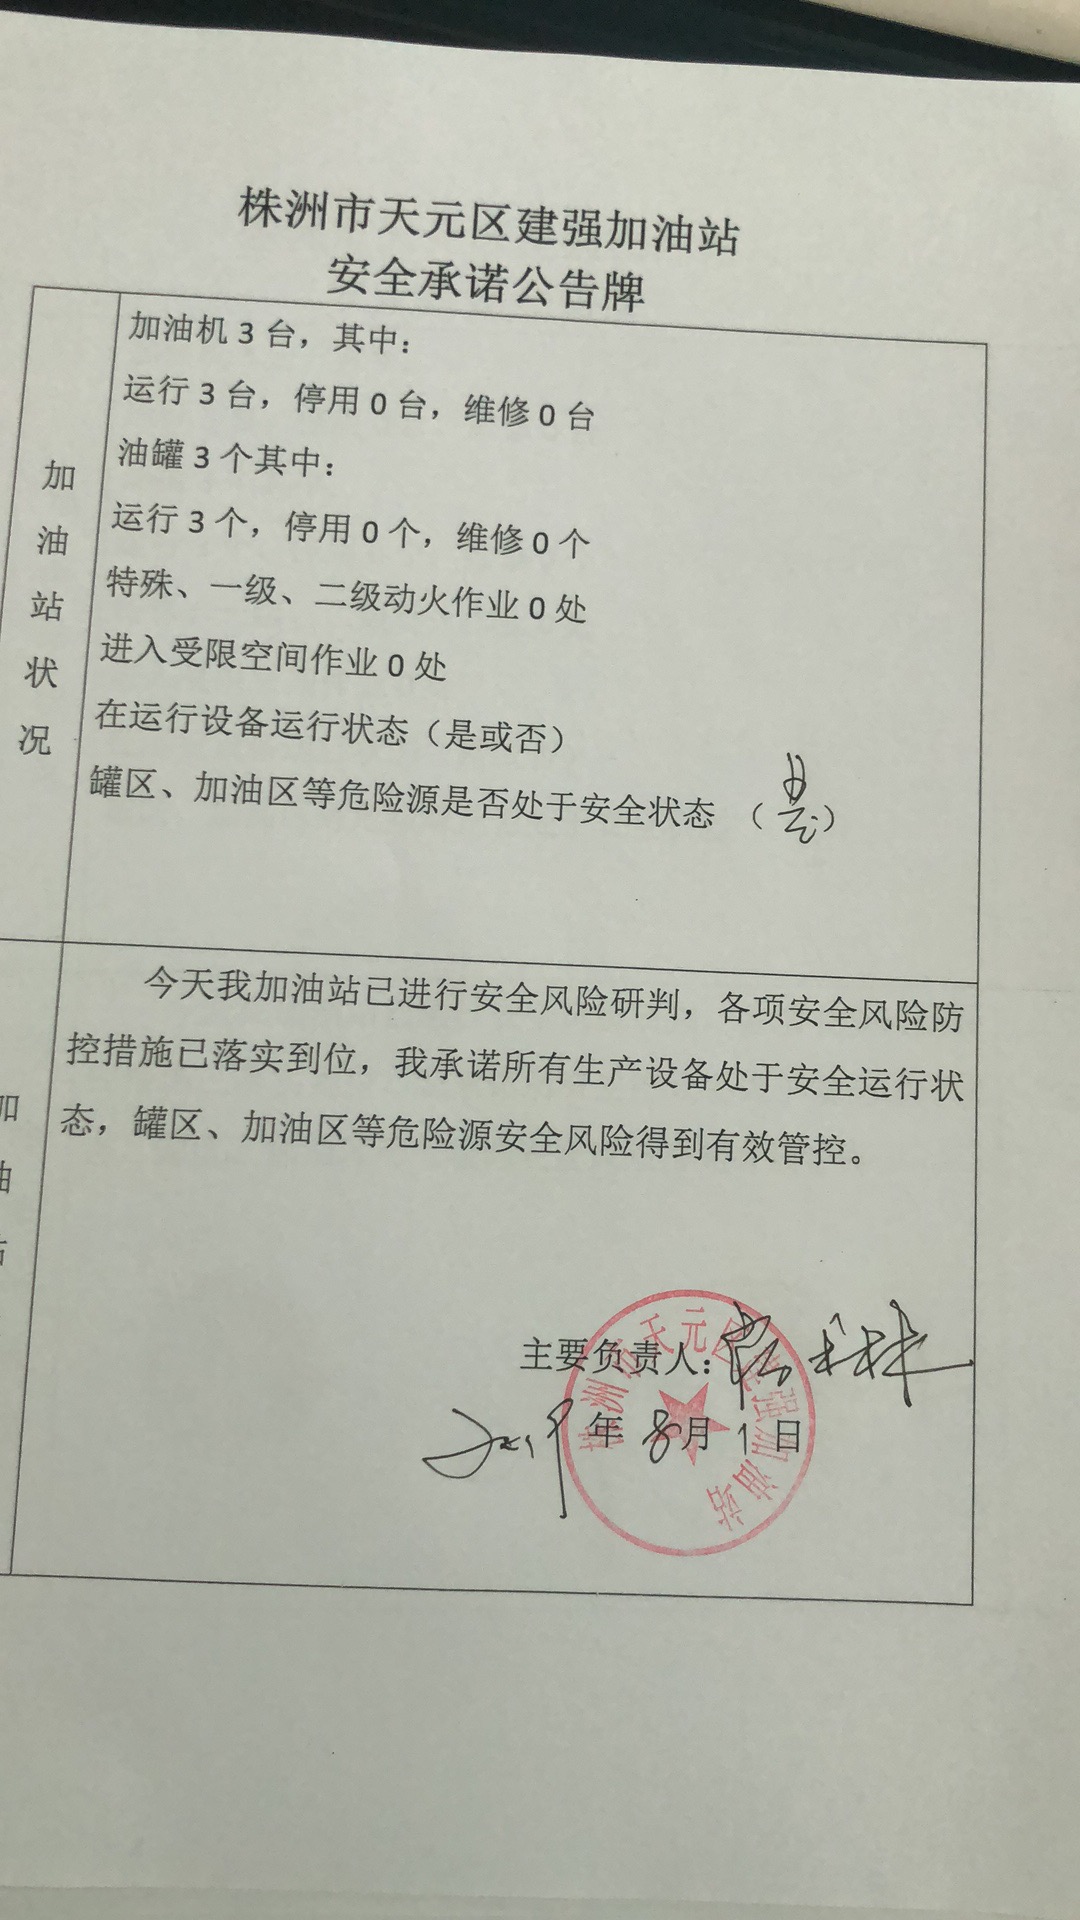 株洲市天元区建强加油站
安全承诺公告牌
加油站状况
加油机 3 台，其中：
运行 3 台，停用 0 台，维修 0 台
油罐 3 个其中：
运行 3 个，停用 0 个，维修 0 个
特殊、一级、二级动火作业 0 处
进入受限空间作业 0 处
在运行设备运行状态（是或否）
罐区、加油区等危险源是否处于安全状态 （是）
加
油
站
今天我加油站已进行安全风险研判，各项安全风险防
控措施已落实到位，我承诺所有生产设备处于安全运行状
态，罐区、加油区等危险源安全风险得到有效管控。
主要负责人：
2019 年 8 月 1 日
株洲市天元区建强加油站